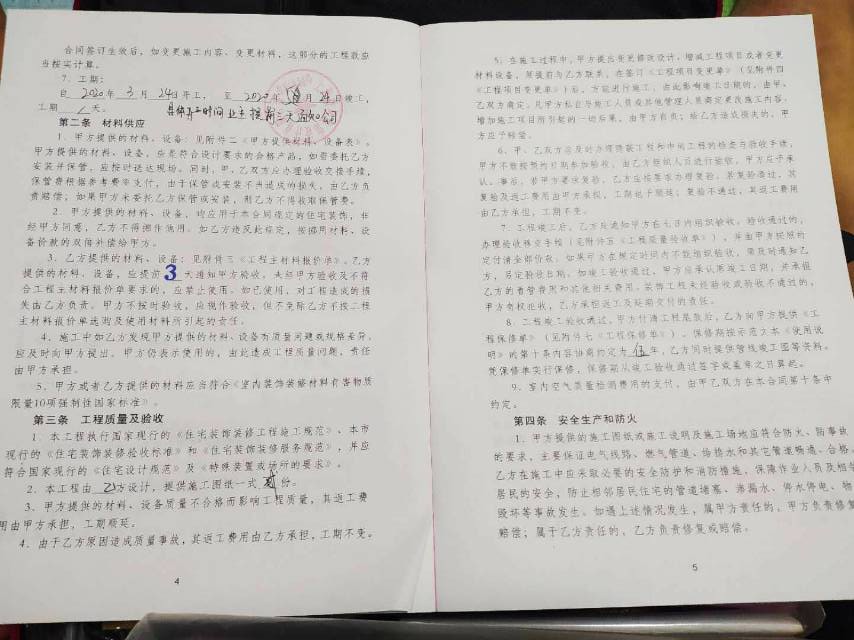 合同签订生效后，如变更施工内容、变更材料，这部分的工程款应
当按实计算。
7．工期：
自 2020 年 3 月 24日开工，至 2020 年 月 24 日竣工，
工期 天。
具体开工时间业主提前三天通知公司
第二条 材料供应
1．甲方提供的材料、设备：见附件二《甲方提供材料、设备表》。
甲方提供的材料、设备，应是符合设计要求的合格产品，如需委托乙方
安装并保管，应按时送达现场。同时，甲、乙双方应办理验收交接手续，
保管费根据参考费率支付，由于保管或安装不当造成的损失，由乙方负
责赔偿；如果甲方未委托乙方保管或安装，则乙方不得收取保管费。
2．甲方提供的材料、设备，均应用于本合同规定的住宅装饰，非
经甲方同意，乙方不得挪作他用。如乙方违反此规定，按挪用材料、设
备价款的双倍补偿给甲方。
3．乙方提供的材料、设备：见附件三《工程主材料报价单》。乙方
提供的材料、设备，应提前 3 天通知甲方验收，未经甲方验收及不符
合工程主材料报价单要求的，应禁止使用。如已使用，对工程造成的损
失由乙方负责。甲方不按时验收，应视作验收，但不免除乙方不按二程
主材料报价单选购及使用材料所引起的责任。
4．施工中如乙方发现甲方提供的材料、设备有质量问题或规格差异，
应及时向甲方提出。甲方仍表示使用的，由此造成工程质量问题，责任
由甲方承担。
5．甲方或者乙方提供的材料应当符合《室内装饰装修材料有害物质
限量10项强制性国家标准》。
第三条 工程质量及验收
1．本工程执行国家现行的《住宅装饰装修工程施工规范》、本市
现行的《住宅装饰装修验收标准》和《住宅装饰装修服务规范》，并应
符合国家现行的《住宅设计规范》及《特殊装置或场所的要求》。
2．本工程由 乙 方设计，提供施工图纸一式 贰 份。
3．甲方提供的材料、设备质量不合格而影响工程质量，其返工费
用由甲方承担，工期顺延。
4．由于乙方原因造成质量事故，其返工费用由乙方承担，工期不变。
4
5．在施工过程中，甲方提出变更修改设计、增减工程项目或者变更
材料设备，须提前与乙方联系，在签订《工程项目变更单》（见附件四
《工程项目变更单》）后，方能进行施工，由此影响竣工日期的，由甲、
乙双方商定。凡甲方私自与施工人员或其他管理人员商定更改施工内容、
增加施工项目所引起的一切后果，由甲方自负；给乙方造成损失的，甲
方应予赔偿。
6．甲、乙双方应及时办理隐蔽工程和中间工程的检查与验收手续，
甲方不能按预约日期参加验收，由乙方组织人员进行验收，甲方应予承
认。事后，若甲方要求复验，乙方应按要求办理复验。若复验合格，其
复验及返工费用由甲方承担，工期也予顺延；复验不通过，其返工费用
由乙方承担，工期不变。
7．工程竣工后，乙方应通知甲方在七日内组织验收，验收通过的，
办理验收移交手续（见附件五《工程质量验收单》），并由甲方按照约
定付清全部价款；如果甲方在规定时间内不能组织验收，须及时通知乙
方，另定验收日期。如竣工验收通过，甲方应承认原竣工日期，并承担
乙方的看管费用和其他相关费用。装饰工程未经验收或验收不通过的，
甲方有权拒收，乙方承担返工及延期交付的责任。
8．工程竣工验收通过，甲方付清工程尾款后，乙方向甲方提供《工
程保修单》（见附件七《工程保修单》），保修期按示范文本《使用说
明》的第十条内容协商约定为 伍 年，乙方同时提供管线竣工图等资料。
凭保修单实行保修，保修期从竣工验收通过签字或盖章之日算起。
9．室内空气质量检测费用的支付，由甲乙双方在本合同第十条中
约定。
第四条 安全生产和防火
1．甲方提供的施工图纸或施工说明及施工场地应符合防火、防事故
的要求，主要保证电气线路、燃气管道、给排水和其它管道畅通、合格。
乙方在施工中应采取必要的安全防护和消防措施，保障作业人员及相邻
居民的安全，防止相邻居民住宅的管道堵塞、渗漏水、停水停电、物
毁坏等事故发生。如遇上述情况发生，属甲方责任的，甲方负责修复
赔偿；属于乙方责任的，乙方负责修复或赔偿。
5